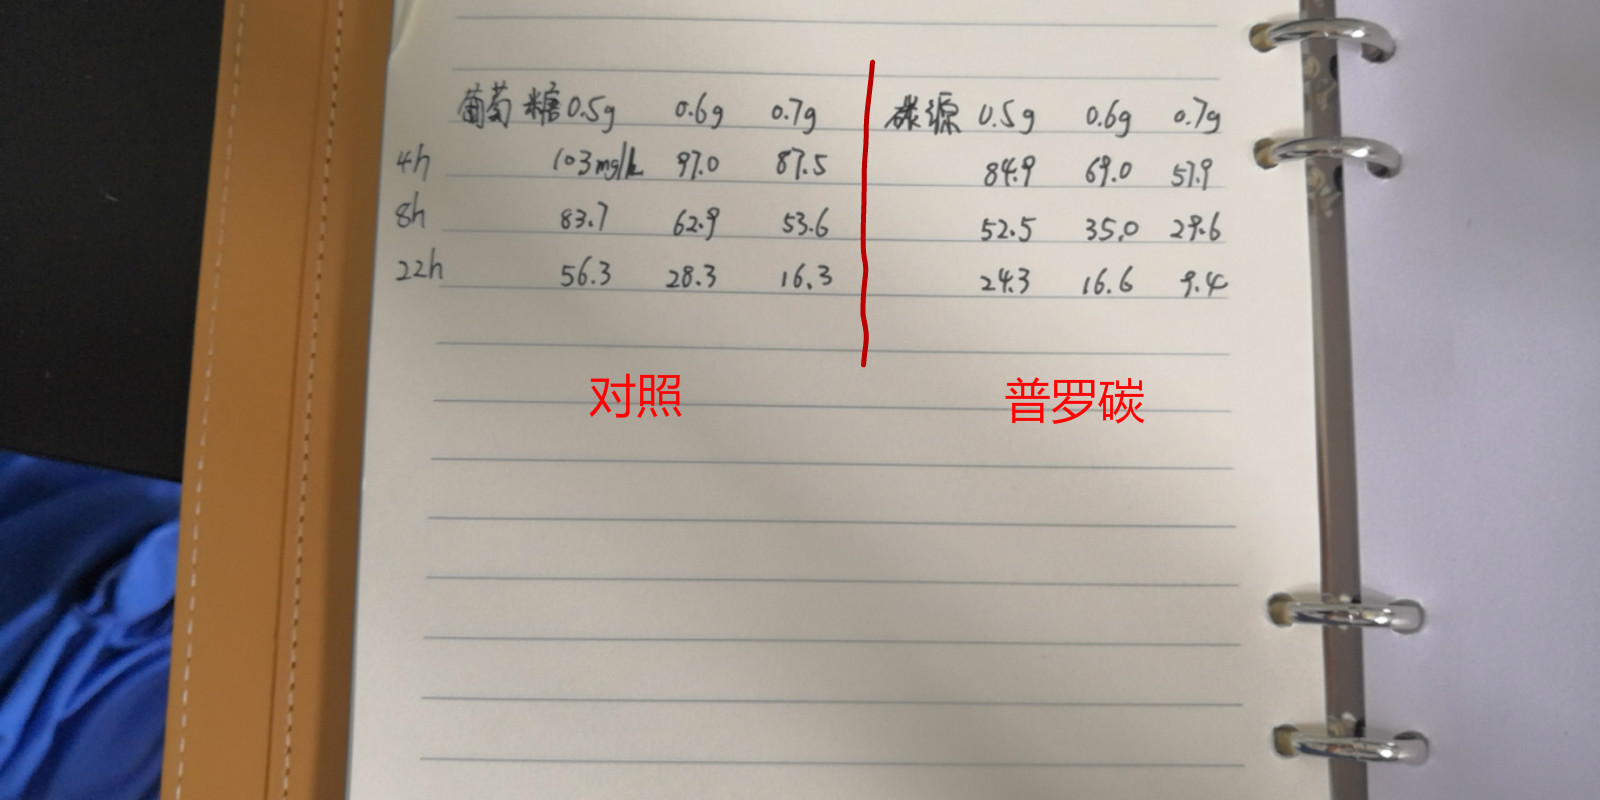 葡萄糖 0.5g 0.6g 0.7g 碳源 0.5g 0.6g 0.7g
4h 103mg/L 97.0 87.5 84.9 69.0 57.9
8h 83.7 62.9 53.6 52.5 35.0 29.6
22h 56.3 28.3 16.3 24.3 16.6 9.4
对照 普罗碳